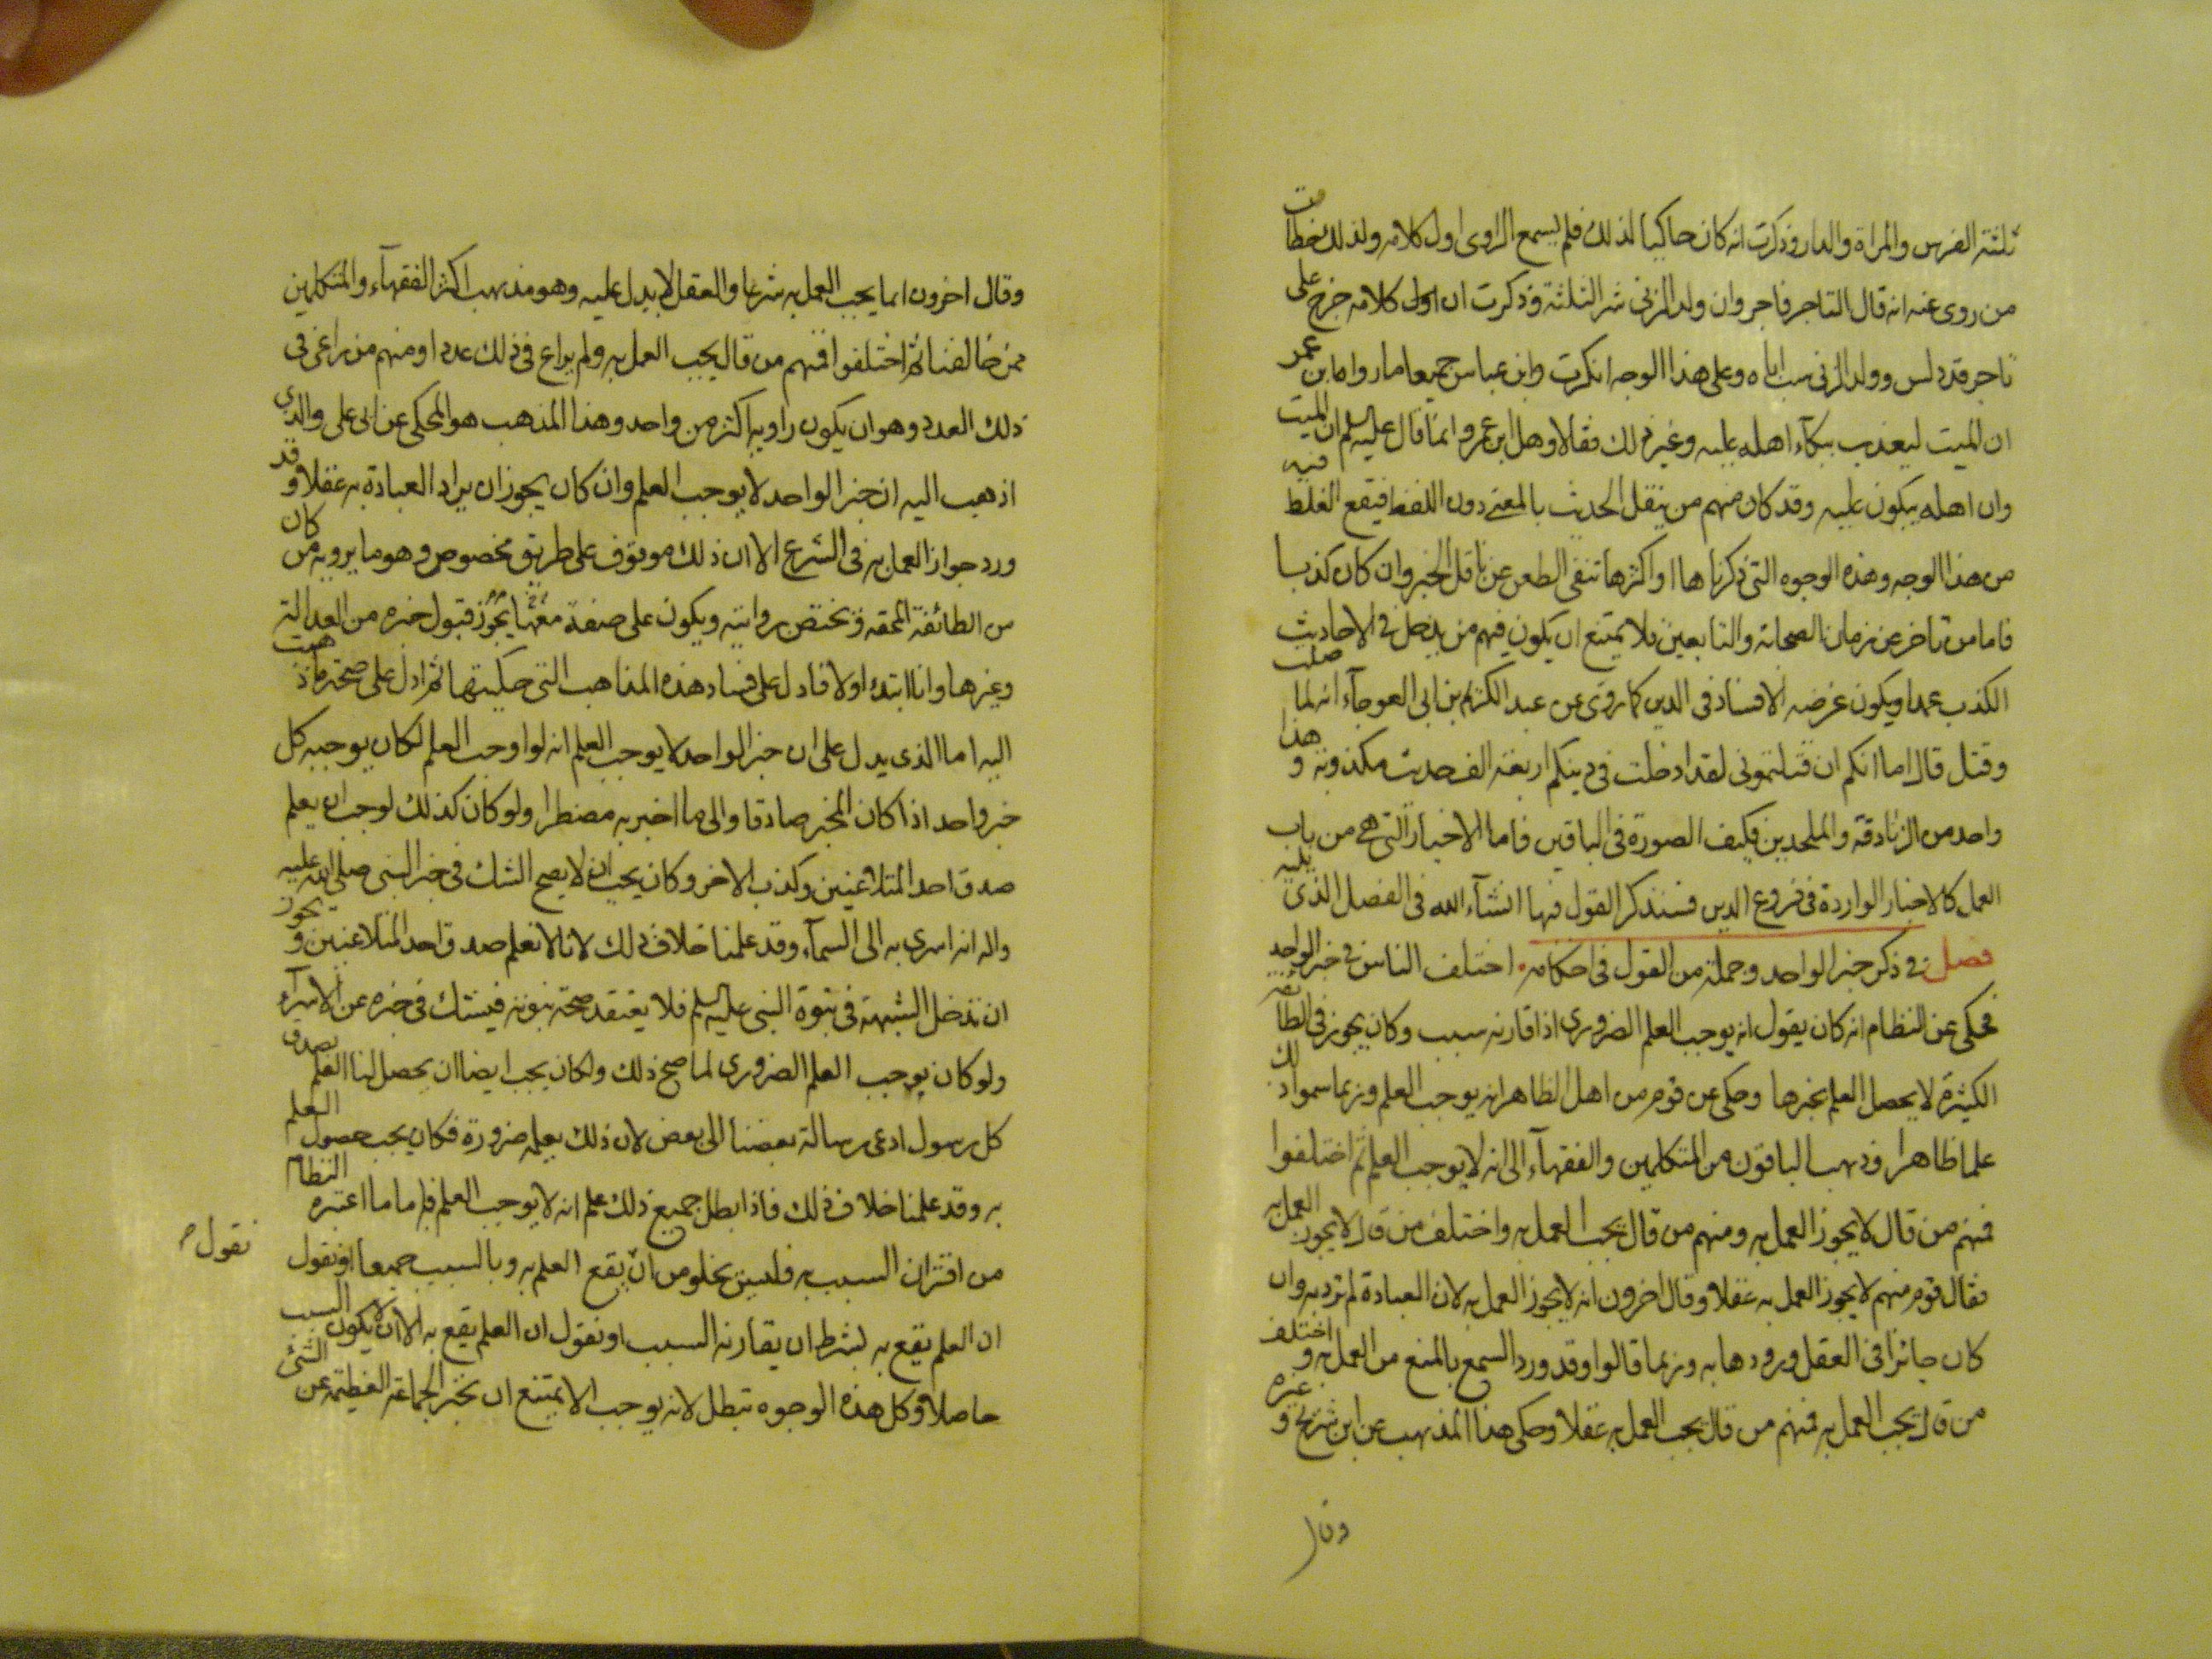 ثلثة الفرس والمراة والدار وذكرت انه كان حاكيا لذلك فلم يسمع الراوى اول كلامه ولذلك خطات
من روى عنه انه قال التاجر فاجر وان ولد الزنى شر الثلثة وذكرت ان اول كلامه خرج على
تاجر قد دلس وولد الزنى سب اباه وعلى هذا الوجه انكرت وابن عباس جميعا ما رواه ابن عمر
ان الميت ليعذب ببكآء اهله عليه وغير ذلك فقالا وهل ابن عمر وانما قال عليه السلم ان الميت
وان اهله يبكون عليه وقد كان منهم من ينقل الحديث بالمعنى دون اللفظ فيقع الغلط فيه
من هذا الوجه وهذه الوجوه التى ذكرناها او اكثرها تنفى الطعن عن ناقل الخبر وان كان كذبا
فاما من تاخر عن زمان الصحابة والتابعين فلا يمتنع ان يكون فيهم من يدخل فى الاحاديث
الكذب عمدا ويكون غرضه الافساد فى الدين كما روى عن عبد الكريم بن ابى العوجآء انه لما صلب
وقتل قال اما انكم ان قتلتمونى لقد ادخلت فى دينكم اربعة الف حديث مكذوبة وهذا
واحد من الزنادقة والملحدين فكيف الصورة فى الباقين فاما الاخبار التى هى من باب
العمل كالاخبار الواردة فى فروع الدين فسنذكر القول فيها انشآء الله فى الفصل الذى يليه
فصل فى ذكر خبر الواحد وجملة من القول فى احكامه اختلف الناس فى خبر الواحد
فحكى عن النظام انه كان يقول انه يوجب العلم الضرورى اذا قارنه سبب وكان يجوز فى الطائفة
الكثيرة لا يحصل العلم بخبرها وحكى عن قوم من اهل الظاهر انه يوجب العلم وربما سموا ذلك
علما ظاهرا وذهب الباقون من المتكلمين والفقهآء الى انه لا يوجب العلم ثم اختلفوا
فمنهم من قال لا يجوز العمل به ومنهم من قال يجب العمل به واختلف من قال لا يجوز العمل به
فقال قوم منهم لا يجوز العمل به عقلا وقال اخرون انه لا يجوز العمل به لان العبادة لم ترد به وان
كان جائزا فى العقل ورودها به وربما قالوا وقد ورد السمع بالمنع من العمل به واختلف
من قال يجب العمل به فمنهم من قال يجب العمل به عقلا وحكى هذا المذهب عن ابن شريح وغيره
وقال
وقال اخرون انما يجب العمل به شرعا والعقل لا يدل عليه وهو مذهب اكثر الفقهآء والمتكلمين
ممن خالفنا ثم اختلفوا فمنهم من قال يجب العمل به ولم يراع فى ذلك عددا ومنهم من راعى فى
ذلك العدد وهو ان يكون راويه اكثر من واحد وهذا المذهب هو المحكى عن ابى على والذى
اذهب اليه ان خبر الواحد لا يوجب العلم وان كان يجوز ان يراد العبادة به عقلا وقد
ورد جواز العمل به فى الشرع الا ان ذلك موقوف على طريق مخصوص وهو ما يرويه من كان
من الطائفة المحقه ويختص بروايته ويكون على صفة معها يجوز قبول خبره من العدالة
وغيرها وانا ابتدء اولا فادل على فساد هذه المذاهب التى حكيتها ثم ادل على صحة ما ذهبت
اليه اما الذى يدل على ان خبر الواحد لا يوجب العلم انه لو اوجب العلم لكان يوجبه كل
خبر واحد اذا كان المخبر صادقا والى ما اخبر به مضطرا ولو كان كذلك لوجب ان يعلم
صدق احد المتلاعنين وكذب الاخر وكان يجب ان لا يصح الشك فى خبر النبى صلى الله عليه
واله انه اسرى به الى السمآء وقد علمنا خلاف ذلك لانا لا نعلم صدق احد المتلاعنين ويجوز
ان تدخل الشبهة فى نبوة النبى عليه السلم فلا يعتقد صحة نبوته فيشك فى خبره عن الاسرآء
ولو كان يوجب العلم الضرورى لما صح ذلك ولكان يجب ايضا ان يحصل لنا العلم بصدق
كل رسول ادعى رسالة بعضنا الى بعض لان ذلك يعلمه ضرورة فكان يجب حصول العلم
به وقد علمنا خلاف ذلك فاذا بطل جميع ذلك علم انه لا يوجب العلم فاما ما اعتبره النظام
من اقتران السبب به فليس يخلو من ان يقع العلم به وبالسبب جميعا او نقول
نقول
ان العلم يقع به بشرط ان يقارنه السبب او نقول ان العلم يقع به الا ان لا يكون السبب
حاصلا وكل هذه الوجوه تبطل لانه يوجب الا يمتنع ان تخبر الجماعة العظيمة عن الشئ